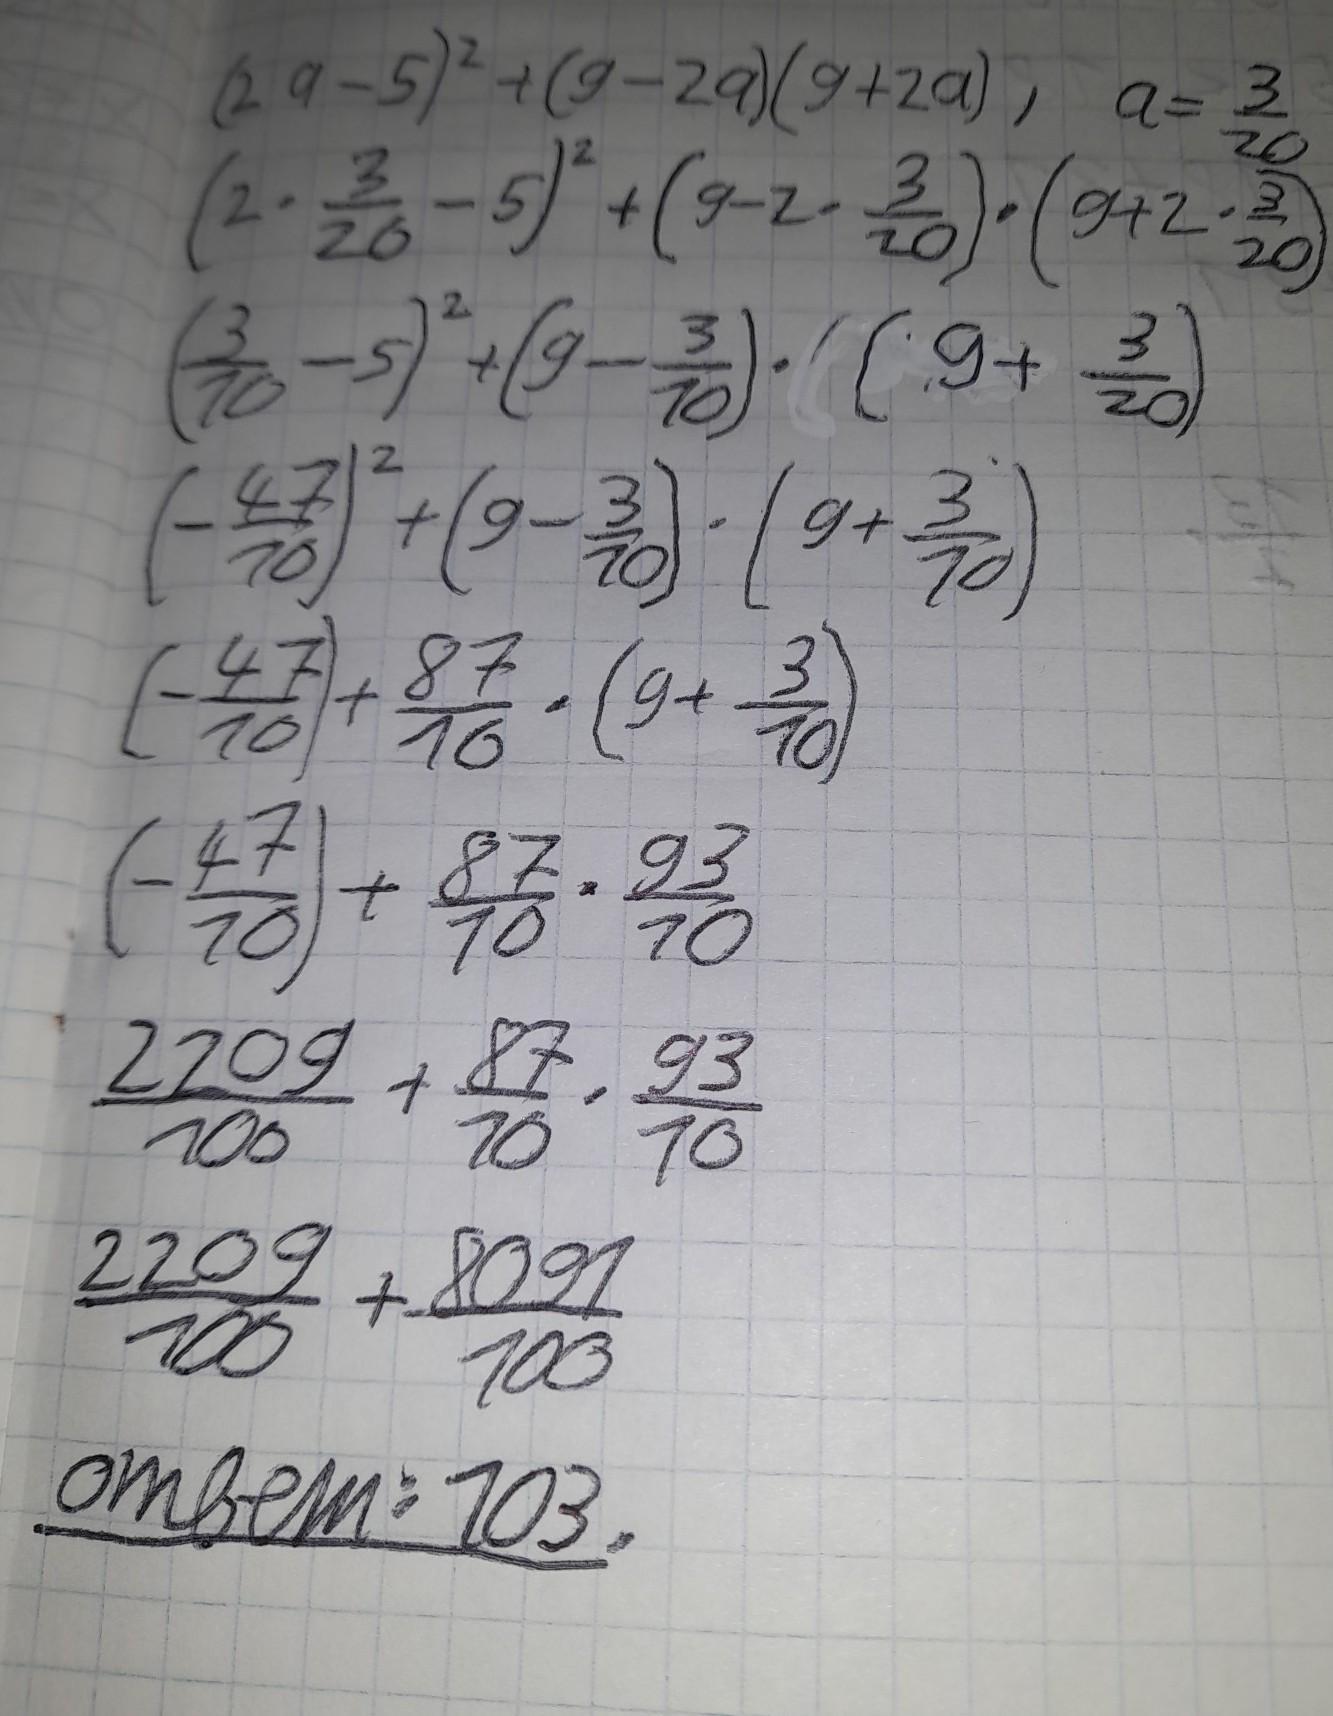 (2a-5)² + (9-2a)(9+2a), a = 3/20
(2 · 3/20 - 5)² + (9-2 · 3/20) · (9+2 · 3/20)
(3/10 - 5)² + (9 - 3/10) · (9 + 3/20)
(- 47/10)² + (9 - 3/10) · (9 + 3/10)
(- 47/10) + 87/10 · (9 + 3/10)
(- 47/10) + 87/10 · 93/10
2209/100 + 87/10 · 93/10
2209/100 + 8091/100
ответ: 103.